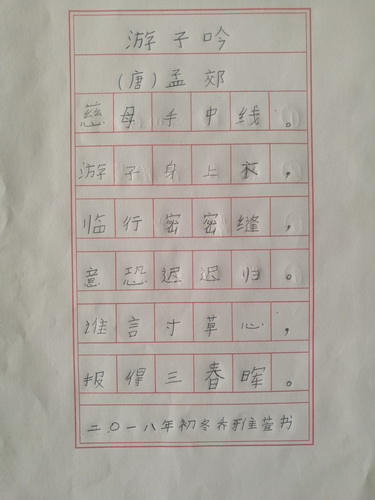 游子吟
(唐)孟郊
慈母手中线。
游子身上衣,
临行密密缝,
意恐迟迟归。
谁言寸草心,
报得三春晖。
二〇一八年初冬乔雅萱书